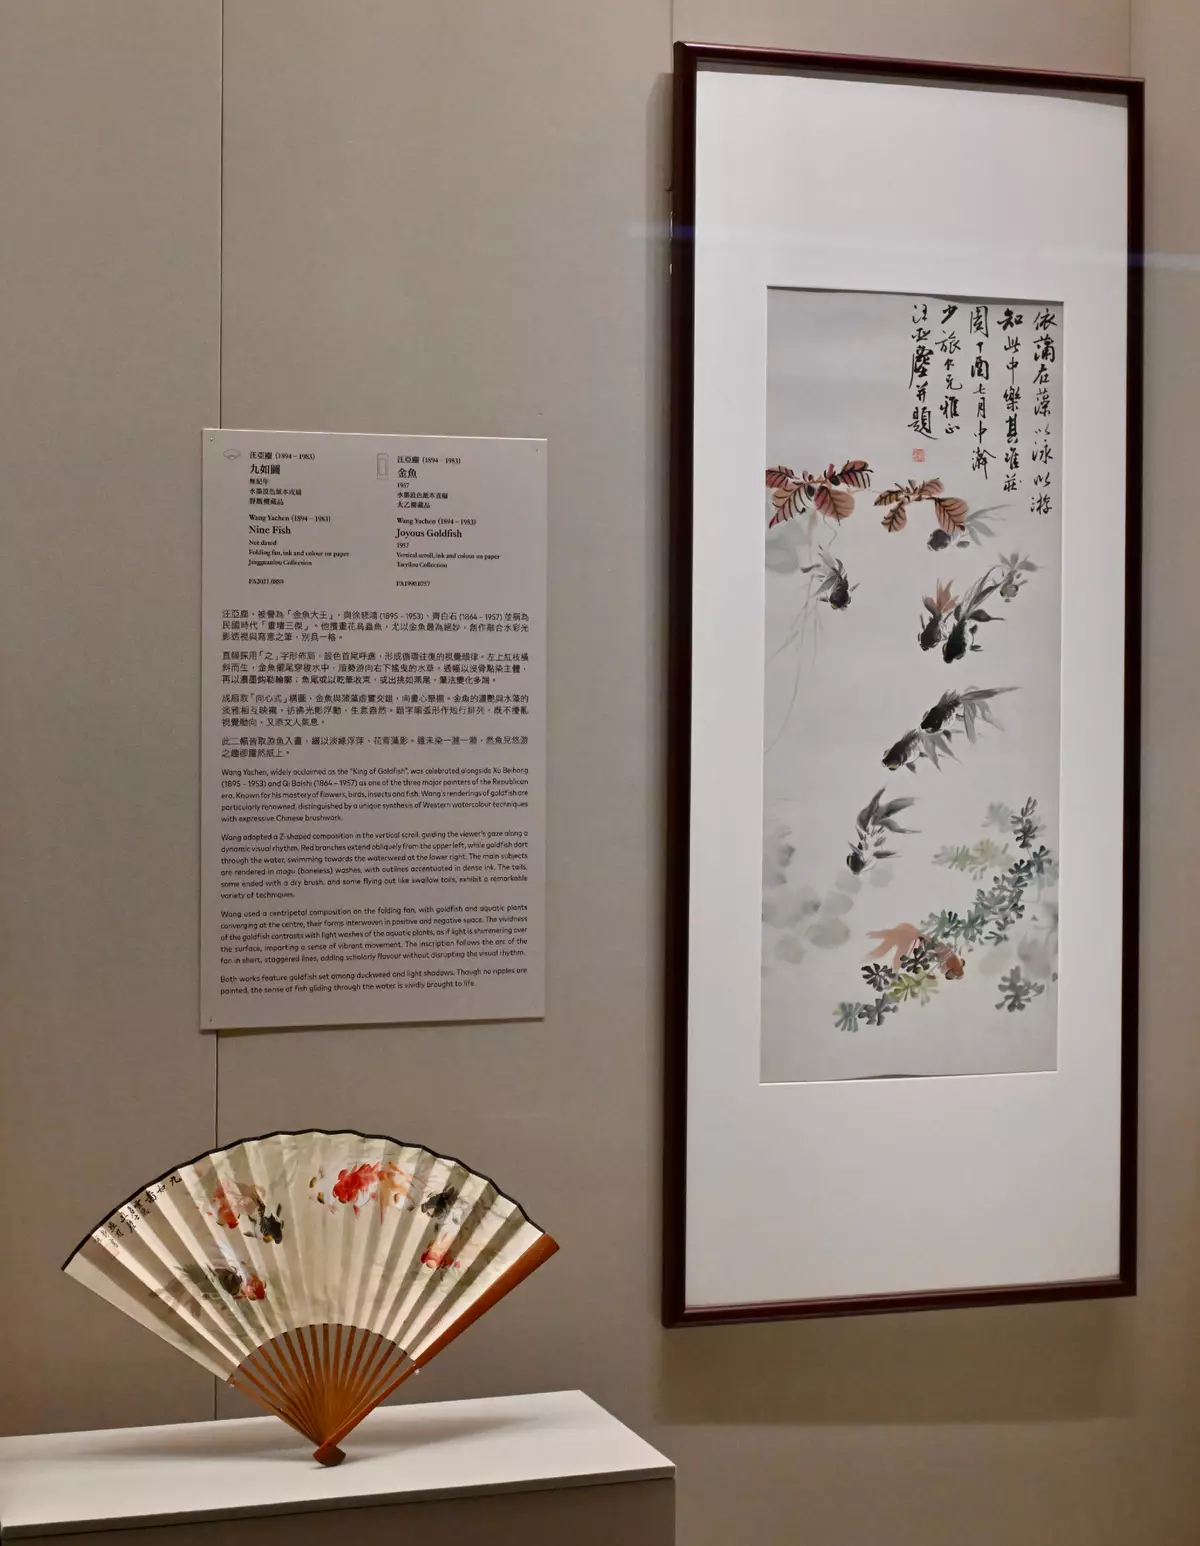 汪亞塵 (1894 – 1983)
九如圖
無紀年
水墨設色紙本成扇
靜觀樓藏品
Wang Yachen (1894 – 1983)
Nine Fish
Not dated
Folding fan, ink and colour on paper
Jingguanlou Collection
FA2021.0089
汪亞塵 (1894 – 1983)
金魚
1957
水墨設色紙本直幅
太乙樓藏品
Wang Yachen (1894 – 1983)
Joyous Goldfish
1957
Vertical scroll, ink and colour on paper
Taiyilou Collection
FA1990.0257
汪亞塵，被譽為「金魚大王」，與徐悲鴻 (1895 - 1953)、齊白石 (1864 - 1957) 並稱為
民國時代「畫壇三傑」。他擅畫花鳥蟲魚，尤以金魚最為絕妙，創作融合水彩光
影透視與寫意之筆，別具一格。
直幅採用「之」字形佈局，設色首尾呼應，形成循環往復的視覺韻律。左上紅枝橫
斜而生，金魚擺尾穿梭水中，順勢游向右下搖曳的水草。通幅以沒骨點染主體，
再以濃墨鈎勒輪廓；魚尾或以乾筆收束，或出挑如燕尾，筆法變化多端。
成扇取「向心式」構圖，金魚與蒲藻虛實交錯，向畫心聚攏。金魚的濃艷與水藻的
淡雅相互映襯，彷彿光影浮動，生意盎然。題字順弧形作短行排列，既不擾亂
視覺動向，又添文人氣息。
此二幅皆取游魚入畫，綴以淡綠浮萍、花青藻影。雖未染一漣一漪，然魚兒悠游
之趣卻躍然紙上。
Wang Yachen, widely acclaimed as the "King of Goldfish", was celebrated alongside Xu Beihong
(1895 - 1953) and Qi Baishi (1864 – 1957) as one of the three major painters of the Republican
era. Known for his mastery of flowers, birds, insects and fish, Wang's renderings of goldfish are
particularly renowned, distinguished by a unique synthesis of Western watercolour techniques
with expressive Chinese brushwork.
Wang adopted a Z-shaped composition in the vertical scroll, guiding the viewer's gaze along a
dynamic visual rhythm. Red branches extend obliquely from the upper left, while goldfish dart
through the water, swimming towards the waterweed at the lower right. The main subjects
are rendered in mogu (boneless) washes, with outlines accentuated in dense ink. The tails,
some ended with a dry brush, and some flying out like swallow tails, exhibit a remarkable
variety of techniques.
Wang used a centripetal composition on the folding fan, with goldfish and aquatic plants
converging at the centre, their forms interwoven in positive and negative space. The vividness
of the goldfish contrasts with light washes of the aquatic plants, as if light is shimmering over
the surface, imparting a sense of vibrant movement. The inscription follows the arc of the
fan in short, staggered lines, adding scholarly flavour without disrupting the visual rhythm.
Both works feature goldfish set among duckweed and light shadows. Though no ripples are
painted, the sense of fish gliding through the water is vividly brought to life.
依蒲在藻以泳以游
知此中樂其唯莊
周丁酉七月中澣
少旅仁兄雅正
汪亞塵并題
九如圖